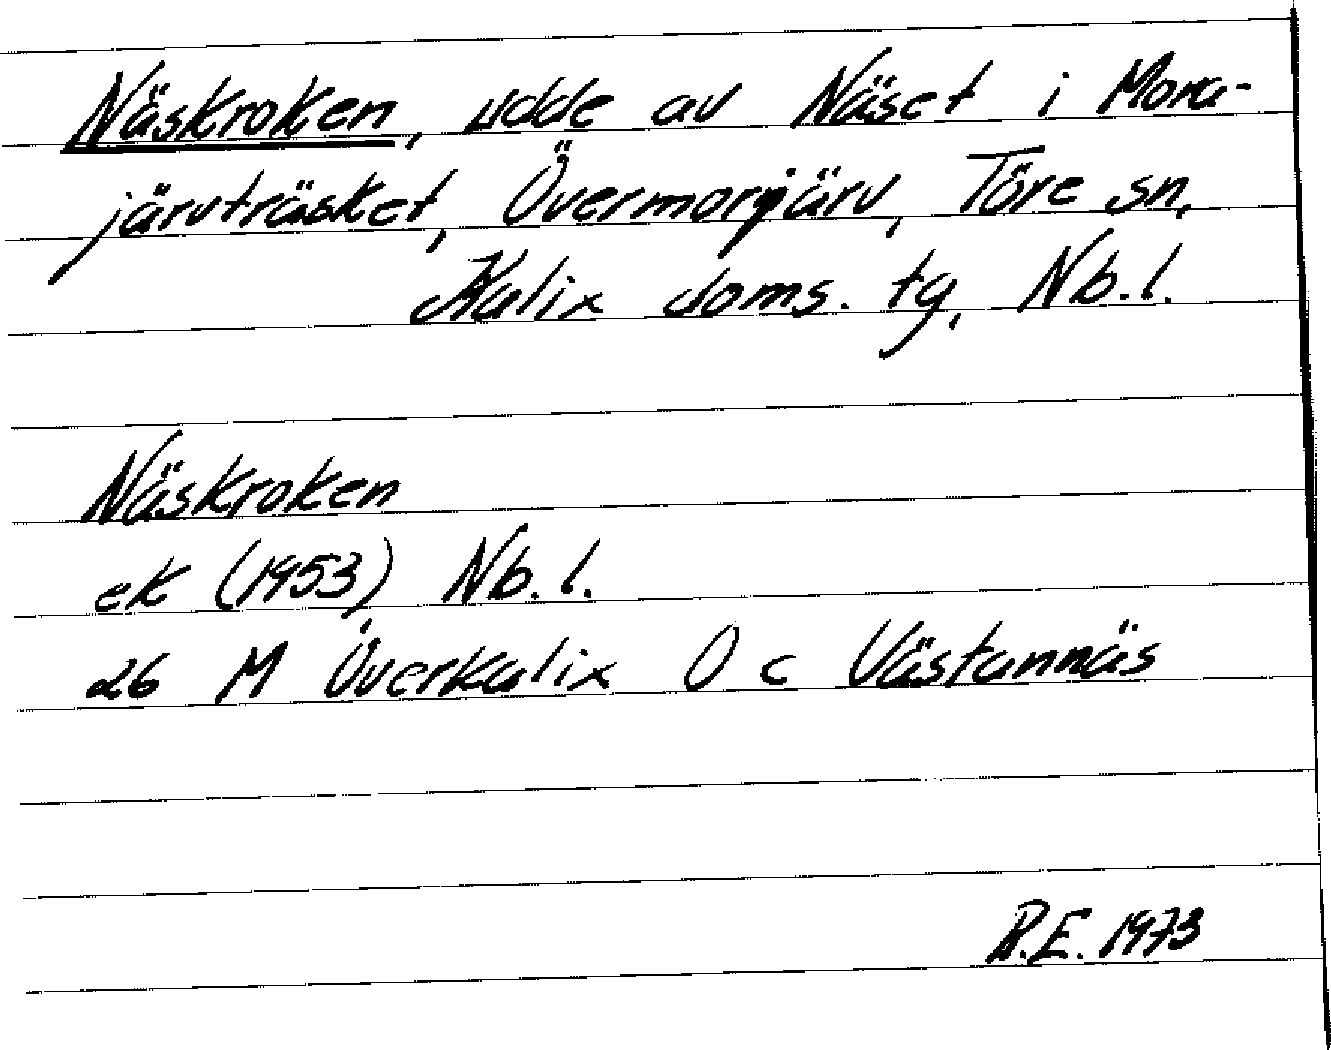 Näskroken, udde av Näset i Mora-
järvträsket, Övermorjärv, Töre sn,
Kalix doms. tg, Nb.l.
Näskroken
ek (1953) Nb.l.
26 M Överkalix O c Västannäs
R.E. 1973